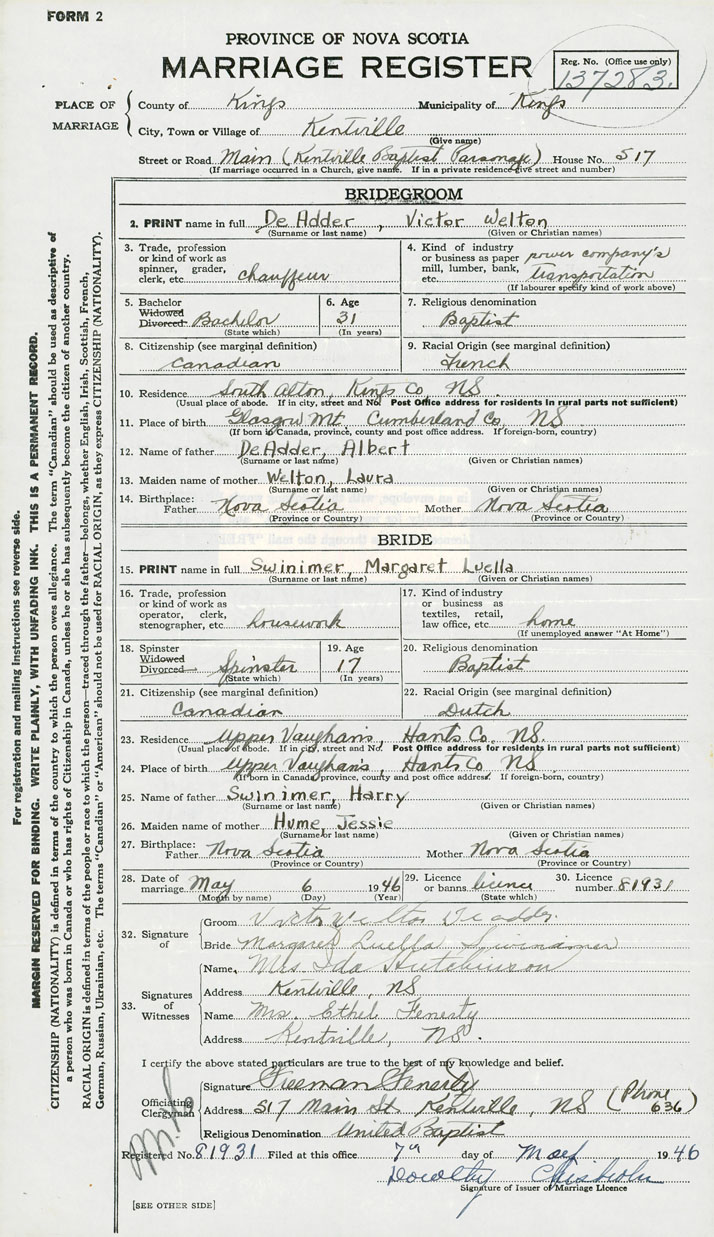 FORM 2
PROVINCE OF NOVA SCOTIA
MARRIAGE REGISTER
Reg. No. (Office use only)
137283.
PLACE OF MARRIAGE
County of Kings Municipality of Kings
City, Town or Village of Kentville
(Give name)
Street or Road Main (Kentville Baptist Parsonage) House No. 517
(If marriage occurred in a Church, give name. If in a private residence give street and number)
BRIDEGROOM
2. PRINT name in full De Adder, Victor Welton
(Surname or last name) (Given or Christian names)
3. Trade, profession or kind of work as spinner, grader, clerk, etc. chauffeur
4. Kind of industry or business as paper mill, lumber, bank, etc. power company's transportation
(If labourer specify kind of work above)
5. Bachelor Widowed Divorced Bachelor
(State which)
6. Age 31
(In years)
7. Religious denomination
Baptist
8. Citizenship (see marginal definition)
Canadian
9. Racial Origin (see marginal definition)
French
10. Residence South Alton, Kings Co NS
(Usual place of abode. If in city, street and No. Post Office address for residents in rural parts not sufficient)
11. Place of birth Glasgow Mt. Cumberland Co. NS
(If born in Canada, province, county and post office address. If foreign-born, country)
12. Name of father DeAdder, Albert
(Surname or last name) (Given or Christian names)
13. Maiden name of mother Welton, Laura
(Surname or last name) (Given or Christian names)
14. Birthplace: Father Nova Scotia Mother Nova Scotia
(Province or Country) (Province or Country)
BRIDE
15. PRINT name in full Swinimer, Margaret Luella
(Surname or last name) (Given or Christian names)
16. Trade, profession or kind of work as operator, clerk, stenographer, etc housework
17. Kind of industry or business as textiles, retail, law office, etc home
(If unemployed answer "At Home")
18. Spinster Widowed Divorced Spinster
(State which)
19. Age 17
(In years)
20. Religious denomination
Baptist
21. Citizenship (see marginal definition)
Canadian
22. Racial Origin (see marginal definition)
Dutch
23. Residence Upper Vaughans, Hants Co. NS.
(Usual place of abode. If in city, street and No. Post Office address for residents in rural parts not sufficient)
24. Place of birth Upper Vaughans, Hants Co NS
(If born in Canada, province, county and post office address. If foreign-born, country)
25. Name of father Swinimer, Harry
(Surname or last name) (Given or Christian names)
26. Maiden name of mother Hume, Jessie
(Surname or last name) (Given or Christian names)
27. Birthplace: Father Nova Scotia Mother Nova Scotia
(Province or Country) (Province or Country)
28. Date of marriage May 6 1946
(Month by name) (Day) (Year)
29. Licence or banns licence
(State which)
30. Licence number 81931
32. Signature of
Groom Victor Welton Deadder
Bride Margaret Luella Swinamer
33. Signatures of Witnesses
Name Mrs. Ida Hutchinson
Address Kentville, NS
Name Mrs. Ethel Fenerty
Address Kentville, NS.
I certify the above stated particulars are true to the best of my knowledge and belief.
Officiating Clergyman
Signature Freeman Fenerty
Address 517 Main St. Kentville, NS (Phone 636)
Religious Denomination United Baptist
Registered No. 81931 Filed at this office 7th day of May 1946
Dorothy Chisholm
Signature of Issuer of Marriage Licence
[SEE OTHER SIDE]
For registration and mailing instructions see reverse side.
MARGIN RESERVED FOR BINDING. WRITE PLAINLY, WITH UNFADING INK. THIS IS A PERMANENT RECORD.
CITIZENSHIP (NATIONALITY) is defined in terms of the country to which the person owes allegiance. The term "Canadian" should be used as descriptive of
a person who was born in Canada or who has rights of Citizenship in Canada, unless he or she has subsequently become the citizen of another country.
RACIAL ORIGIN is defined in terms of the people or race to which the person—traced through the father—belongs, whether English, Irish, Scottish, French,
German, Russian, Ukrainian, etc. The terms "Canadian" or "American" should not be used for RACIAL ORIGIN, as they express CITIZENSHIP (NATIONALITY).